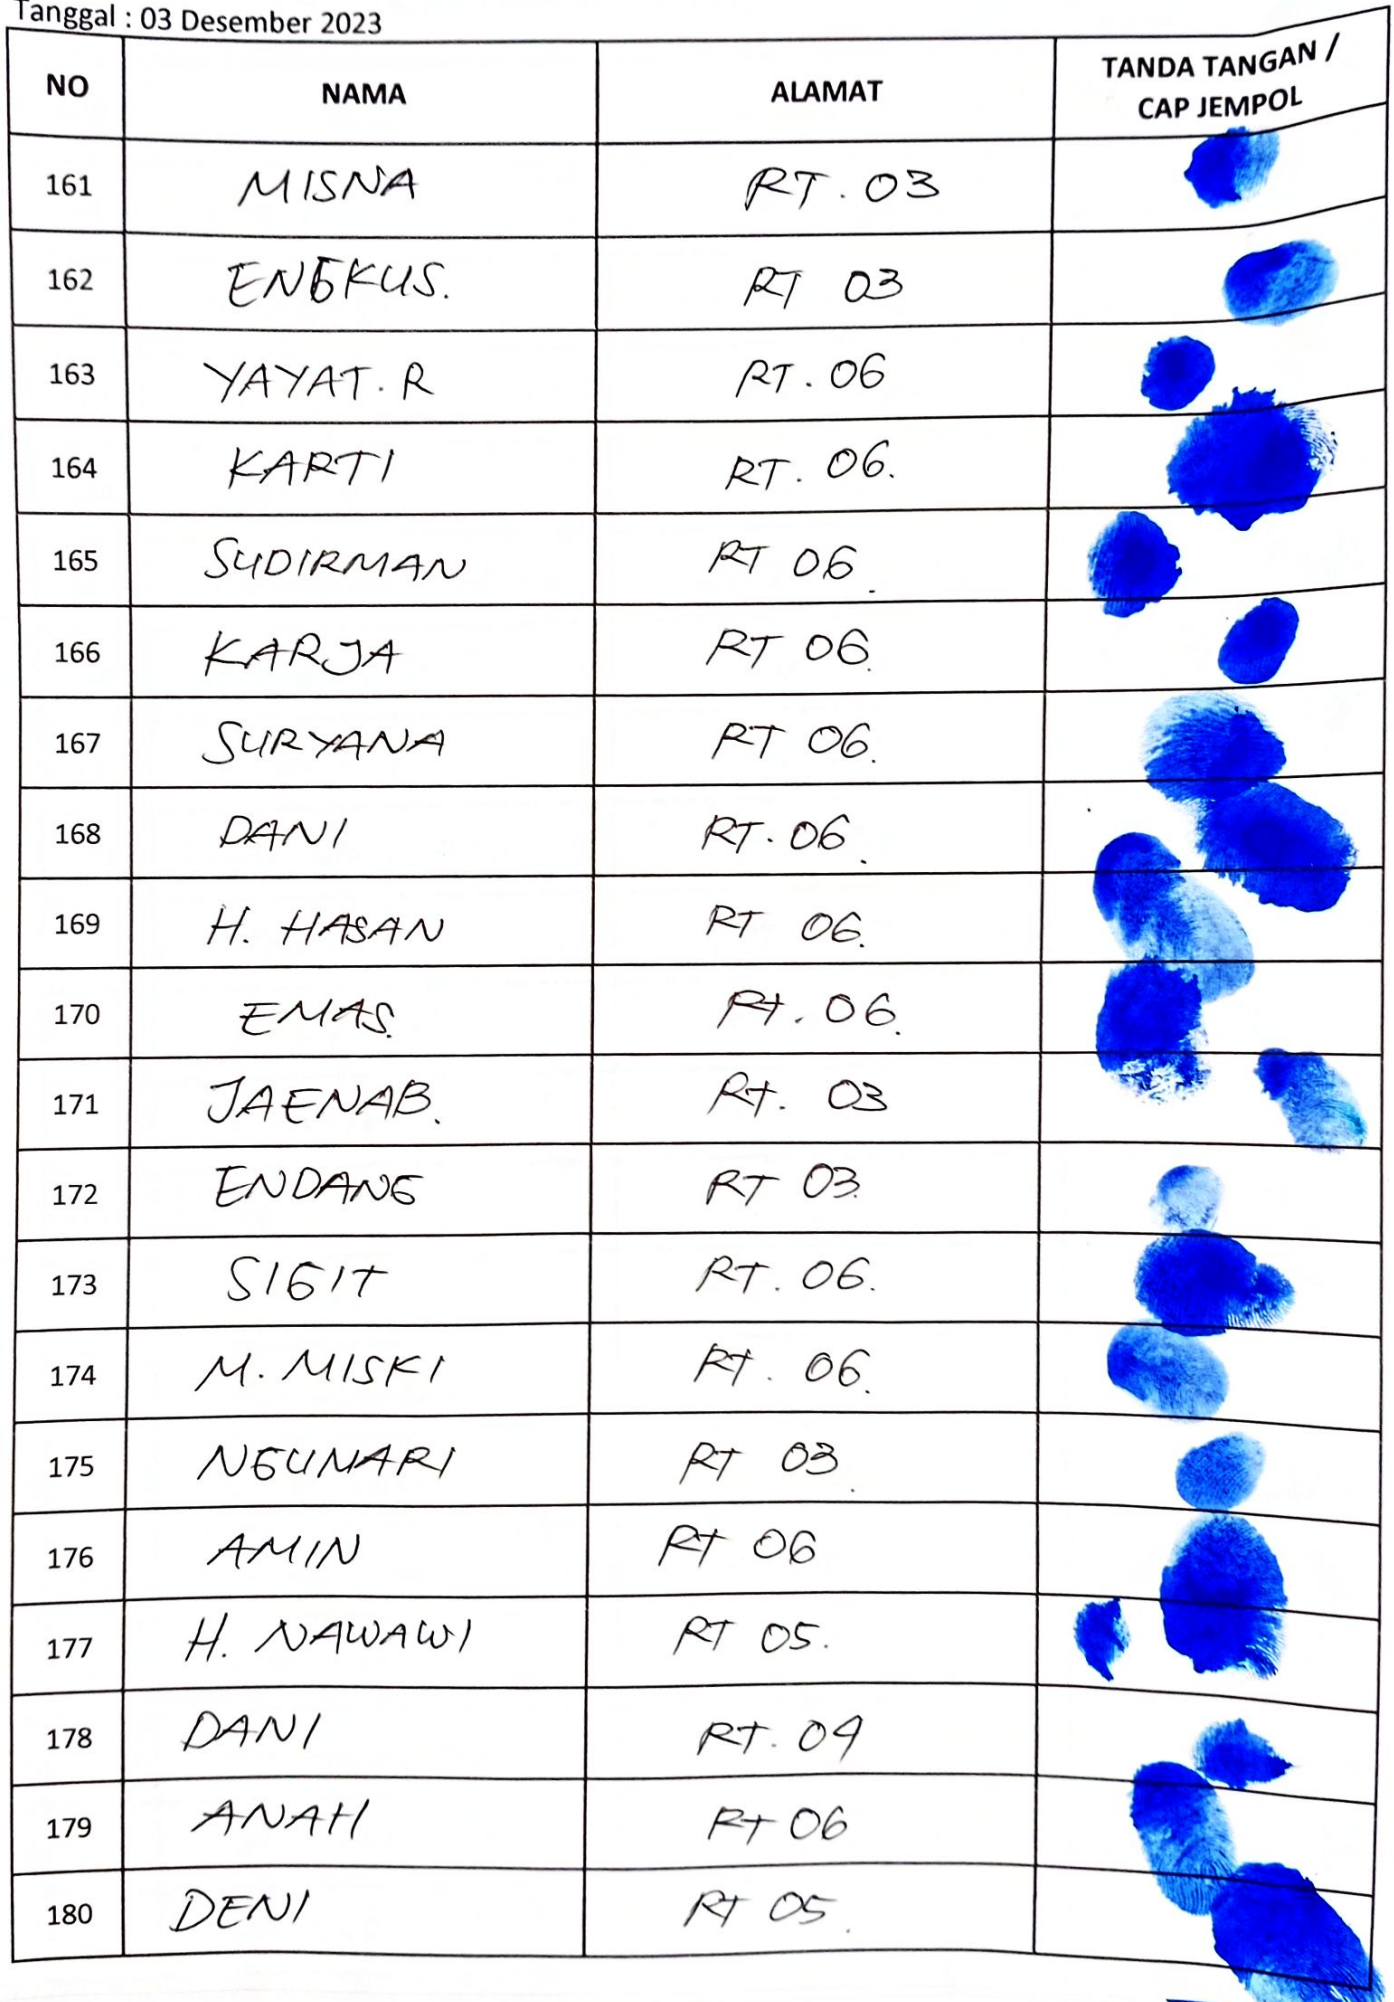 Tanggal : 03 Desember 2023
NO NAMA ALAMAT TANDA TANGAN / CAP JEMPOL
161 MISNA RT. 03
162 ENGKUS. RT 03
163 YAYAT. R RT. 06
164 KARTI RT. 06.
165 SUDIRMAN RT 06.
166 KARJA RT 06.
167 SURYANA RT 06.
168 DANI RT. 06.
169 H. HASAN RT 06.
170 EMAS. Rt. 06.
171 JAENAB. Rt. 03
172 ENDANG RT 03.
173 SIGIT RT. 06.
174 M. MISKI RT. 06.
175 NGUMARI RT 03.
176 AMIN Rt 06
177 H. NAWAWI RT 05.
178 DANI RT. 04
179 ANAH Rt 06
180 DENI RT 05.